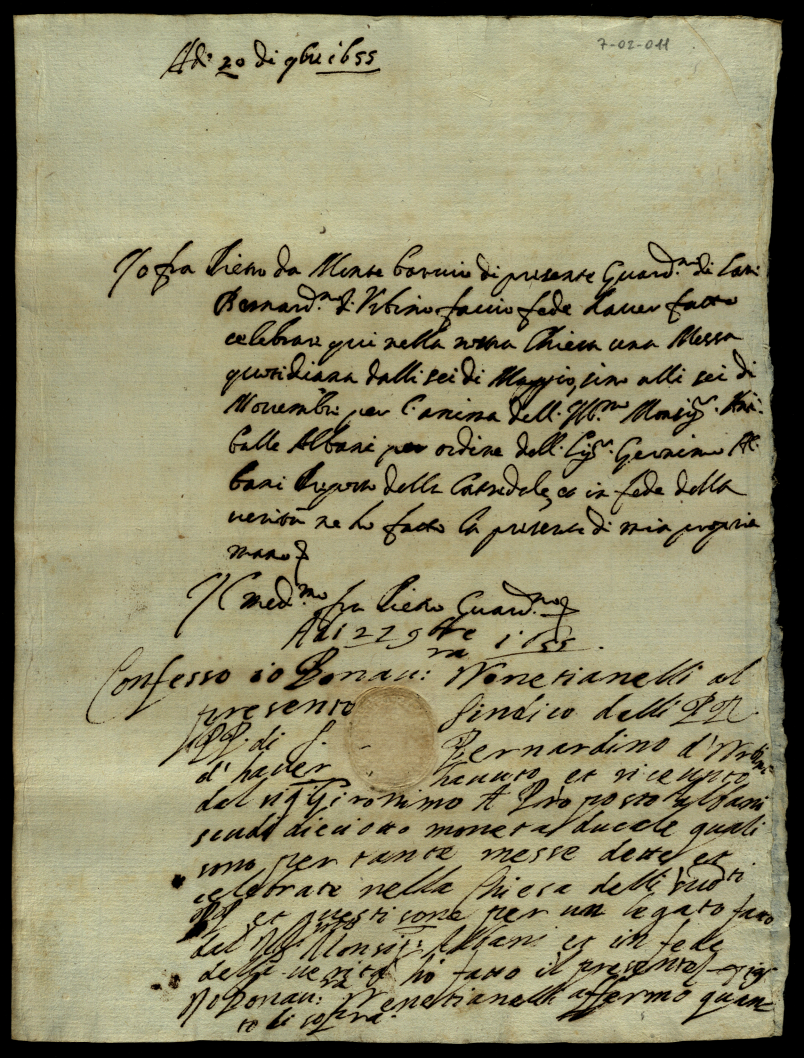 7-02-011
Adi 20 di 9bre 1655
Io fra Pietro da Monte Baroccio di presente Guard.no di San
Bernard.no d'Urbino faccio fede d'aver fatto
celebrare qui nella nostra Chiesa una Messa
quotidiana dalli sei di Maggio, sino alli sei di
Novembre per l'anima dell'Ill.mo Monsig.r Anni-
balle Albani per ordine dell Sig.r Geronimo Al-
bani Preposto della Catredale, et in fede della
verità ne ho fatto la presente di mia propria
mano
Il med.mo fra Pietro Guard.no
Adi 22 9bre 1655
Confesso io Bonau:ra Venetianelli al
presente Sindico delli RR
PP. di S. Bernardino d'Urbino
d'haver havuto et riceuuto
dal sig Gironimo Proposto Albani
scudi diciotto moneta ducale quali
sono per tante messe dette et
celebrate nella Chiesa delli sudti
PP et questi sono per un legato fatto
dal Monsig: Albani et in fede
della verità hò fatto il presente
Io Bonau:ra Venetianelli affermo quan-
to di sopra